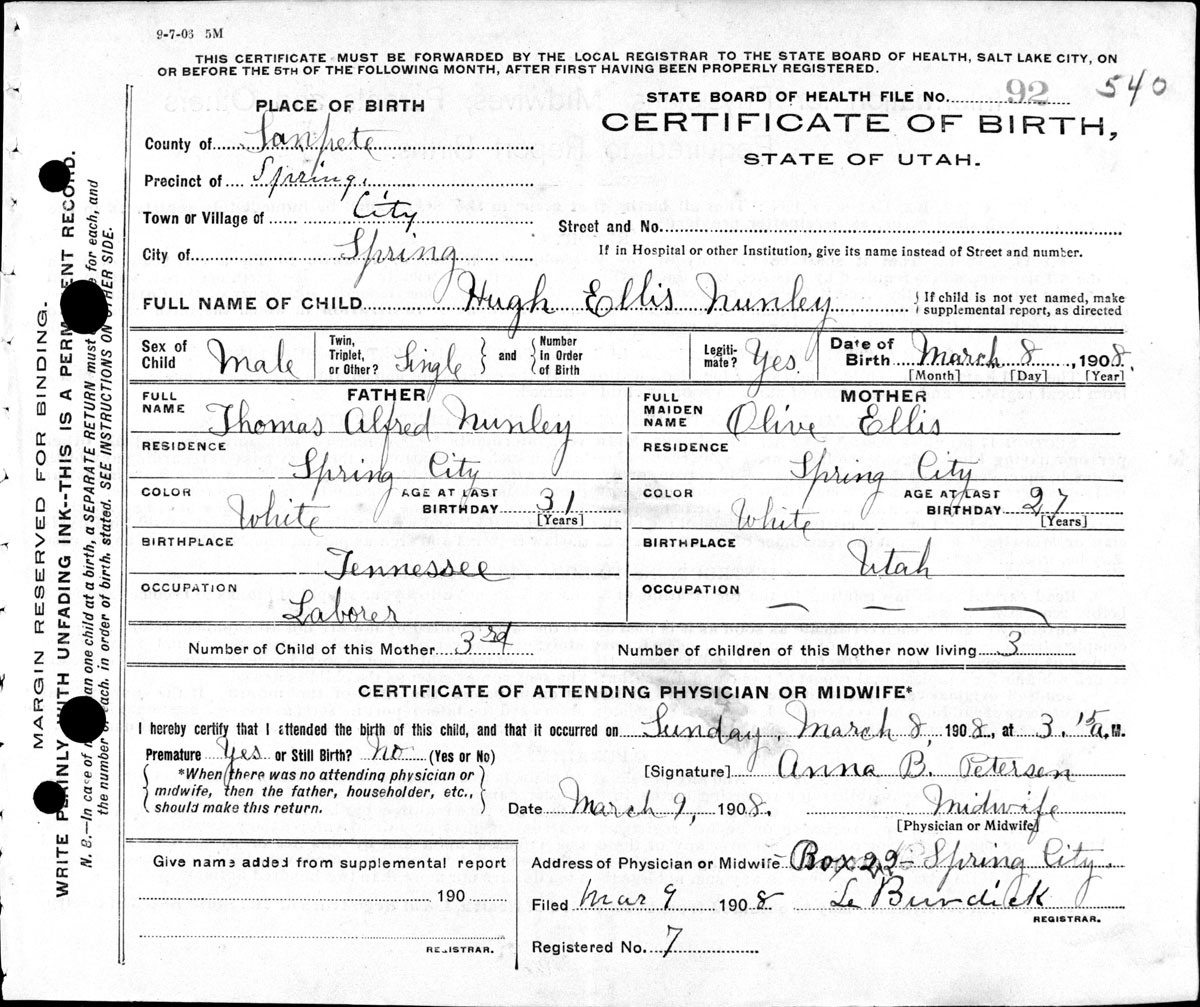 9-7-03 5M
THIS CERTIFICATE MUST BE FORWARDED BY THE LOCAL REGISTRAR TO THE STATE BOARD OF HEALTH, SALT LAKE CITY, ON
OR BEFORE THE 5TH OF THE FOLLOWING MONTH, AFTER FIRST HAVING BEEN PROPERLY REGISTERED.
STATE BOARD OF HEALTH FILE No. 92 540
CERTIFICATE OF BIRTH,
STATE OF UTAH.
PLACE OF BIRTH
County of Sanpete
Precinct of Spring
Town or Village of City
City of Spring
Street and No.
If in Hospital or other Institution, give its name instead of Street and number.
FULL NAME OF CHILD Hugh Ellis Nunley
{ If child is not yet named, make
supplemental report, as directed
Sex of Child Male
Twin, Triplet, or Other? Single } and { Number in Order of Birth
Legiti-mate? Yes.
Date of Birth March 8, 1908.
[Month] [Day] [Year]
FATHER
FULL NAME Thomas Alfred Nunley
RESIDENCE Spring City
COLOR White AGE AT LAST BIRTHDAY 31 [Years]
BIRTHPLACE Tennessee
OCCUPATION Laborer
MOTHER
FULL MAIDEN NAME Olive Ellis
RESIDENCE Spring City
COLOR White AGE AT LAST BIRTHDAY 27 [Years]
BIRTHPLACE Utah
OCCUPATION
Number of Child of this Mother 3rd Number of children of this Mother now living 3
CERTIFICATE OF ATTENDING PHYSICIAN OR MIDWIFE*
I hereby certify that I attended the birth of this child, and that it occurred on Sunday, March 8, 1908, at 3.15 a. M.
Premature Yes or Still Birth? No (Yes or No)
{ *When there was no attending physician or
midwife, then the father, householder, etc.,
should make this return. }
[Signature] Anna B. Petersen
Date March 9, 1908. Midwife
[Physician or Midwife]
Give name added from supplemental report
190
REGISTRAR.
Address of Physician or Midwife Box 22- Spring City.
Filed Mar 9 1908 Burdick
REGISTRAR.
Registered No. 7
MARGIN RESERVED FOR BINDING.
WRITE PLAINLY WITH UNFADING INK--THIS IS A PERMANENT RECORD.
N. B.--In case of an one child at a birth, a SEPARATE RETURN must for each, and
the number each, in order of birth, stated. SEE INSTRUCTIONS ON OTHER SIDE.